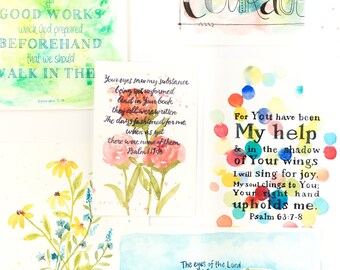 GOOD WORKS
which GOD prepared
BEFOREHAND
that we should
WALK IN THE
Courage
Your eyes saw my substance
being yet unformed
And in Your book
they all were written
The days fashioned for me,
when as yet
there were none of them.
Psalm 139:16
For You have been
My help
& in the shadow
of Your wings
I will sing for joy.
My soul clings to You;
Your right hand
upholds me.
Psalm 63:7-8
The eyes of the Lord